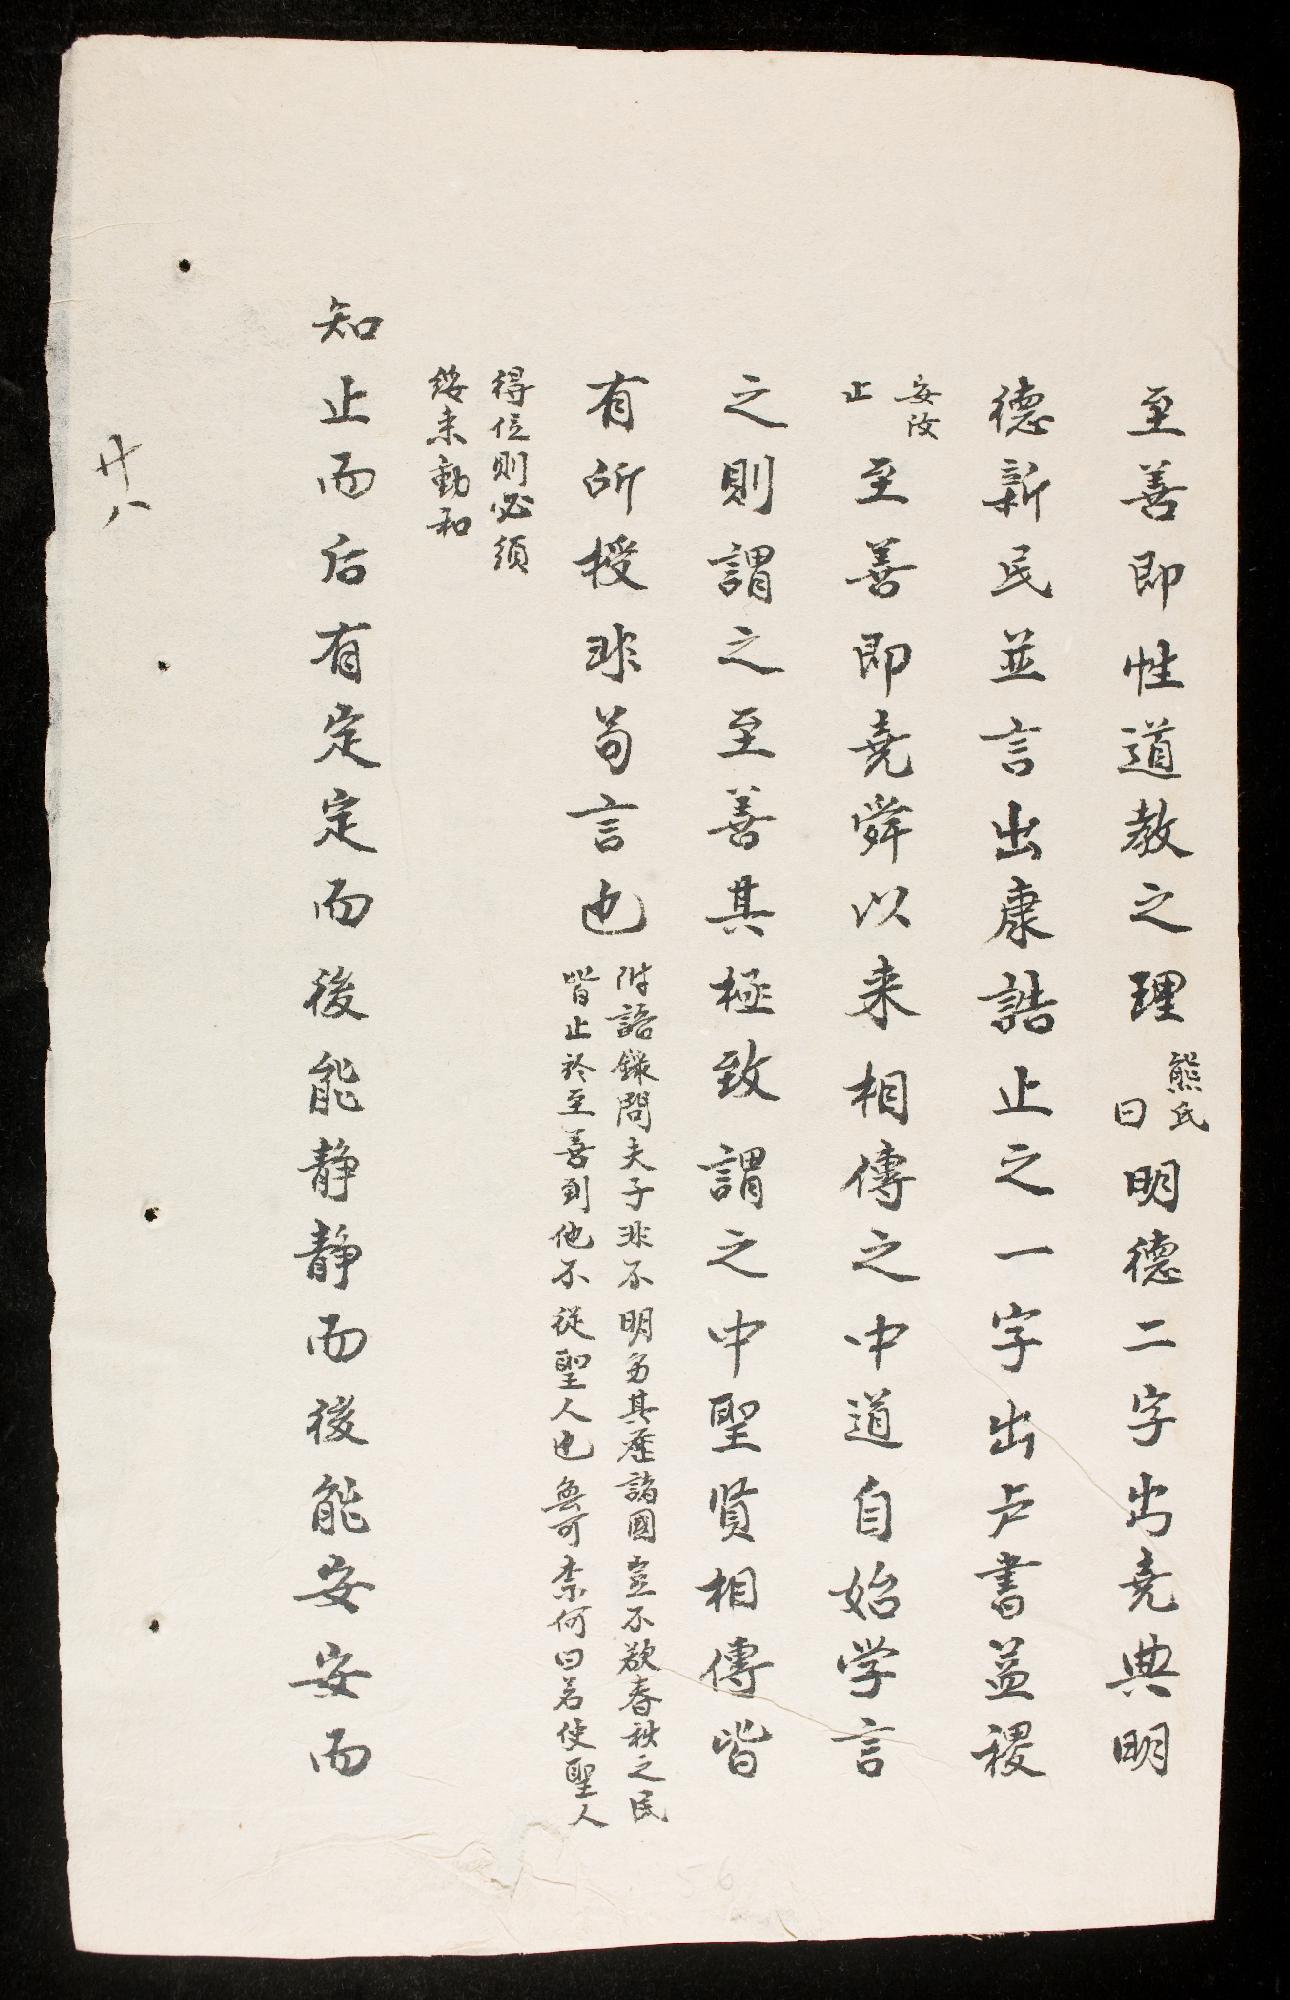 至善即性道教之理熊氏曰明德二字出尭典明
德新民並言出康誥止之一字出卢書益稷
安汝止至善即尭舜以来相傳之中道自始学言
之則謂之至善其極致謂之中聖贤相傳皆
有所授非苟言也附語錄問夫子非不明另其歷諸國豈不欲春秋之民
皆止於至善到他不從聖人也無可柰何曰若使聖人
得位則必須
綏来動和
知止而后有定定而後能静静而後能安安而
廿八
56